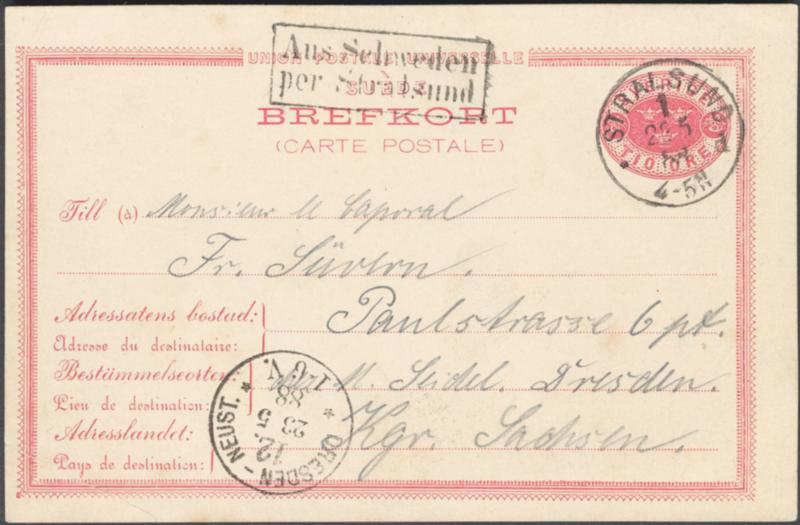 Aus Schweden
per Stralsund
UNION POSTALE UNIVERSELLE
SUÈDE
BREFKORT
(CARTE POSTALE)
STRALSUND
1
22 5
4-5N
TIO ÖRE
Till (à) Monsieur le Caporal
Fr. Süvern.
Adressatens bostad: Paulstrasse 6 pt.
Adresse du destinataire:
Bestämmelseorten: M. Seidel. Dresden.
Lieu de destination:
Adresslandet: Kgr. Sachsen.
Pays de destination:
DRESDEN-NEUST.
12
23 5
88